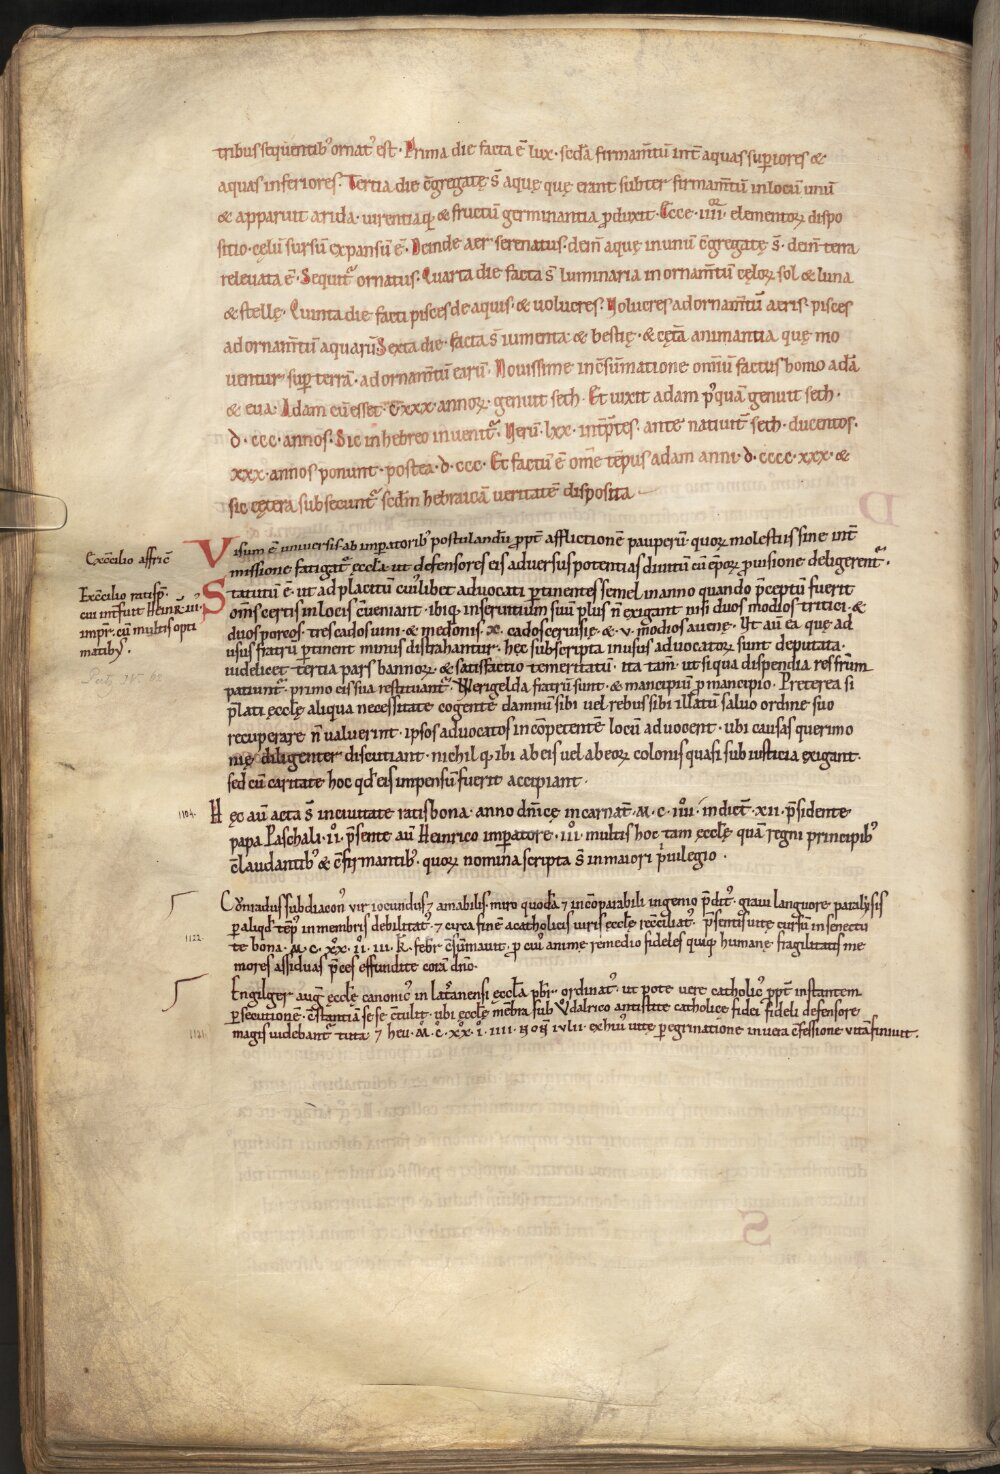 tribus sequentib' ornat' est. Prima die facta ē lux. sedā firmam̄tū int̄ aquas superiores &
aquas inferiores. Tertia die c̄gregatę s̄ aquę quę erant subter firmam̄tū in locū unū
& apparuit arida. uirentiaq; & fructū germinantia p̄duxit. Ecce .iiii. elementoꝝ dispo
sitio. cęlū sursū expansū ē. Deinde aer serenatus. dein̄ aquę in unū c̄gregatę s̄. dein̄ terra
releuata ē. Sequit̄ ornatus. Quarta die facta s̄ luminaria in ornam̄tū cęloꝝ sol & luna
& stellę. Quinta die facti pisces de aquis. & uolucres. Volucres ad ornam̄tū aeris. pisces
ad ornam̄tū aquarū. Sexta die. facta s̄ iumenta & bestię. & cęt̄a animantia quę mo
uentur sup̄ terrā. ad ornam̄tū earū. Nouissime in c̄sūmatione omniū factus homo adā
& eua. Adam cū esset .CXXX. annoꝝ. genuit seth. Et uixit adam p'quā genuit seth.
d.ccc. annos. Sic in hebreo inuenit̄. Verū .lxx. int̄p̄tes. ante natiuit̄ seth. ducentos.
xxx. annos ponunt. postea .d.ccc. Et factū ē om̄e tēpus adam anni .d.cccc.xxx. &
sic cętera subsecunt̄ sedm̄ hebraicā veritatē disposita
Ex c̄cilio affric̄
Visum ē uniuersis ab imp̄atorib' postulandū p̄pt̄ afflictionē pauperū. quoꝝ molestiis sine int̄
missione fatigat̄ eccl̄a. ut defensores eis aduersus potentias diuitū cū ep̄oꝝ p̄uisione deligerent̄.
Ex c̄cilio ratisp̄.
cui int̄fuit Heinr̄. iii'.
imp̄r. cū multis opti
matib'.
Statutū ē. ut ad placitū cui'libet aduocati p̄tinentes semel in anno quando p̄ceptū fuerit
om̄s certis in locis c̄ueniant. ibiq; in seruitium suū plus n̄ exigant nisi duos modios tritici. &
duos porcos. tres cados uini. & medonis .x. cados ceruisię. & .v. modios auenę. Vt aū ea quę ad
usus fratrū p̄tinent minus distrahantur. hęc subscripta in usus aduocatoꝝ sunt deputata.
uidelicet tertia pars bannoꝝ. & satisfactio temeritatū. ita tam̄. ut siqua dispendia res fr̄m
patiunt̄. primo eis sua restituant̄. Werigelda fratrū sunt. & mancipiū p̄ mancipio. Preterea si
p̄lati eccl̄ę aliqua necessitate cogente damnū sibi uel rebus sibi illatū saluo ordine suo
recuperare n̄ ualuerint. ipsos aduocatos in c̄petentē locū aduocent. ubi causas querimo
nię diligenter discutiant. nichilq; ibi ab eis uel ab eoꝝ colonis quasi sub iusticia exigant.
sed cū caritate hoc qd̄ eis impensū fuerit accipiant.
1104.
Hęc aū acta s̄ in ciuitate ratisbona. anno dn̄icę incarnat̄. M.C.IIII. indict̄. XII. p̄sidente
papa Paschali .II. p̄sente aū Heinrico imp̄atore .III. multis hoc tam eccl̄ę quā regni principib'
c̄laudantib' & c̄firmantib'. quoꝝ nomina scripta s̄ in maiori p'uilegio.
Cōnradus subdiacon' vir iocundus ⁊ amabilis. miro quodā ⁊ inc̄parabili ingenio p̄dit'. graui languore paralysis
p̄ aliqd̄ temp' in membris debilitat'. ⁊ circa finē a catholicis uiris eccl̄ę rec̄ciliat'. p̄sentis uitę cursū in senectu
1122.
te bona. M.C.XX.II. III. K. febr̄ c̄sūmauit. p̄ cui' animę remedio fideles quiq; humanę fragilitatis me
mores assiduas p̄ces effundite corā dn̄o.
Engilger auḡ eccl̄ę canonic' in lat̄anensi ęccl̄a pb̄r ordinat'. ut pote uere catholic' p̄pt̄ instantem
p̄secutionē. c̄stantiā se se c̄tulit. ubi eccl̄ę mēbra sub Vodalrico antistite catholicę fidei fideli defensore
1121.
magis uidebant̄ tuta ⁊ heu. M.C.XX.I. IIII. NON̄ IVLII. ex hui' uitę p̄egrinatione in uera c̄fessione uitā finiuit.